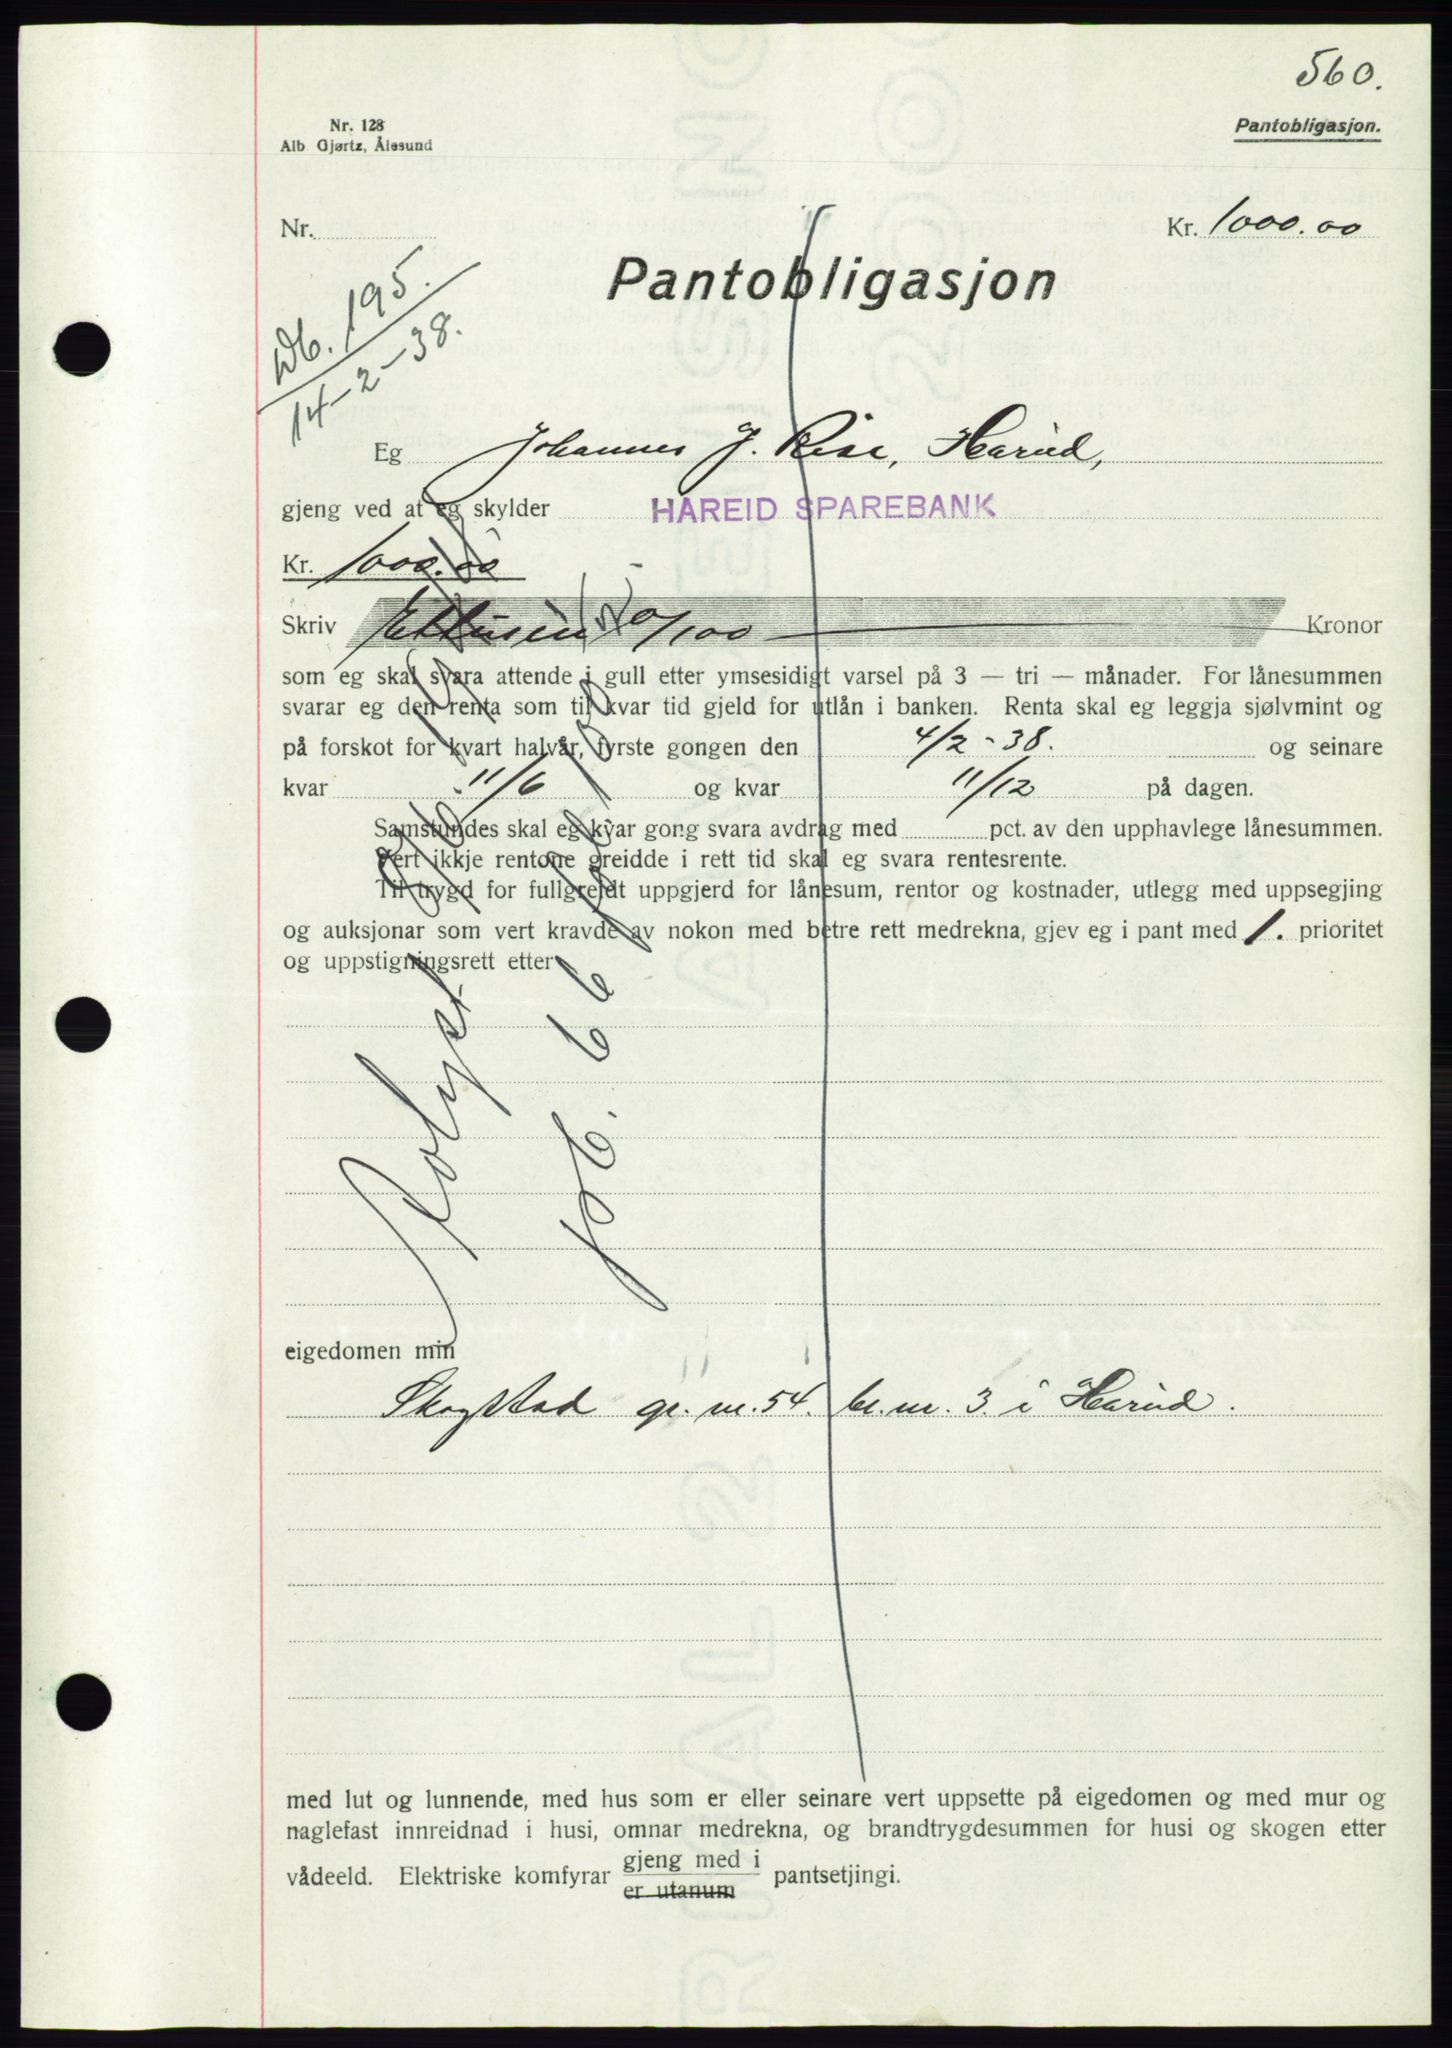 560.
Nr. 128
Alb Gjørtz, Ålesund
Pantobligasjon.
Nr.
Kr. 1000.00
Pantobligasjon
Db. 195.
14-2-38.
Eg Johannes J. Rise, Hareid,
gjeng ved at eg skylder HAREID SPAREBANK
Kr. 1000.00
Skriv Ettusen 0/100 Kronor
som eg skal svara attende i gull etter ymsesidigt varsel på 3 — tri — månader. For lånesummen
svarar eg den renta som til kvar tid gjeld for utlån i banken. Renta skal eg leggja sjølvmint og
på forskot for kvart halvår, fyrste gongen den 4/2-38. og seinare
kvar 11/6 og kvar 11/12 på dagen.
Samstundes skal eg kvar gong svara avdrag med pct. av den upphavlege lånesummen.
Vert ikkje rentone greidde i rett tid skal eg svara rentesrente.
Til trygd for fullgreidt uppgjerd for lånesum, rentor og kostnader, utlegg med uppsegjing
og auksjonar som vert kravde av nokon med betre rett medrekna, gjev eg i pant med 1. prioritet
og uppstigningsrett etter
Avlyst
pb. 66 fol 100
eigedomen min
Skogstad gr. nr. 54. br. nr. 3. i Hareid.
med lut og lunnende, med hus som er eller seinare vert uppsette på eigedomen og med mur og
naglefast innreidnad i husi, omnar medrekna, og brandtrygdesummen for husi og skogen etter
vådeeld. Elektriske komfyrar gjeng med i pantsetjingi.
er utanum